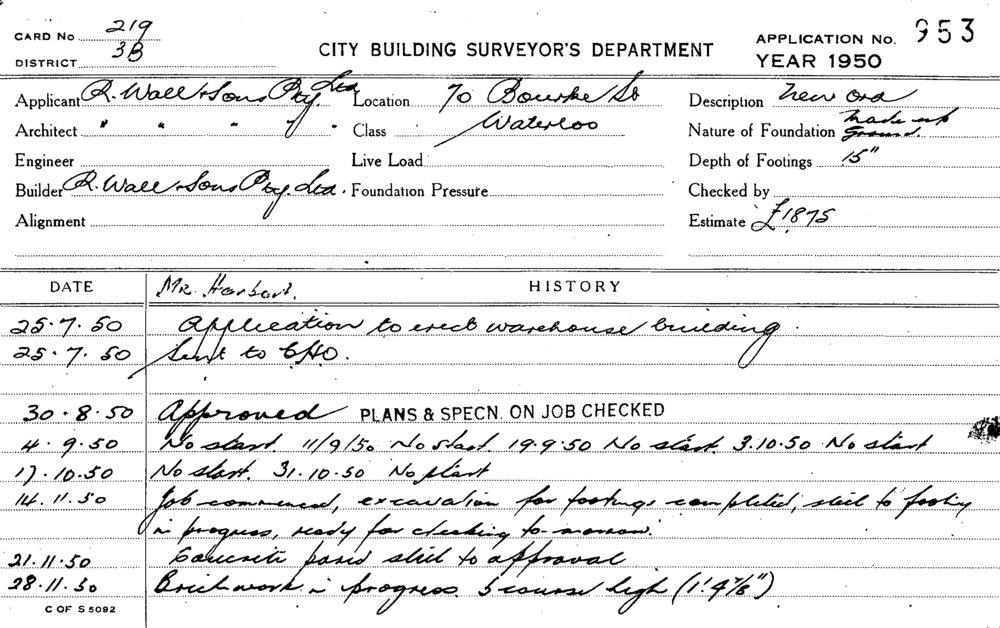 CARD No 219
DISTRICT 3B
CITY BUILDING SURVEYOR'S DEPARTMENT
APPLICATION No. 953
YEAR 1950
Applicant R. Wall & Sons Pty Ltd Location 70 Bourke St Description New Ord
Architect " " " " " Class Waterloo Nature of Foundation Made up Ground.
Engineer Live Load Depth of Footings 15"
Builder R. Wall & Sons Pty. Ltd. Foundation Pressure Checked by
Alignment Estimate £1875
DATE Mr. Harbort. HISTORY
25.7.50 Application to erect warehouse building.
25.7.50 Sent to CHO.
30.8.50 Approved PLANS & SPECN. ON JOB CHECKED
4.9.50 No start. 11/9/50 No start. 19.9.50 No start. 3.10.50 No start
17.10.50 No start. 31.10.50 No start
14.11.50 Job commenced, excavation for footings completed, steel to footing
in progress, ready for checking to-morrow.
21.11.50 Concrete steel to approval
28.11.50 Brickwork in progress. 5 course high (1'.4⅞")
C OF S 5092